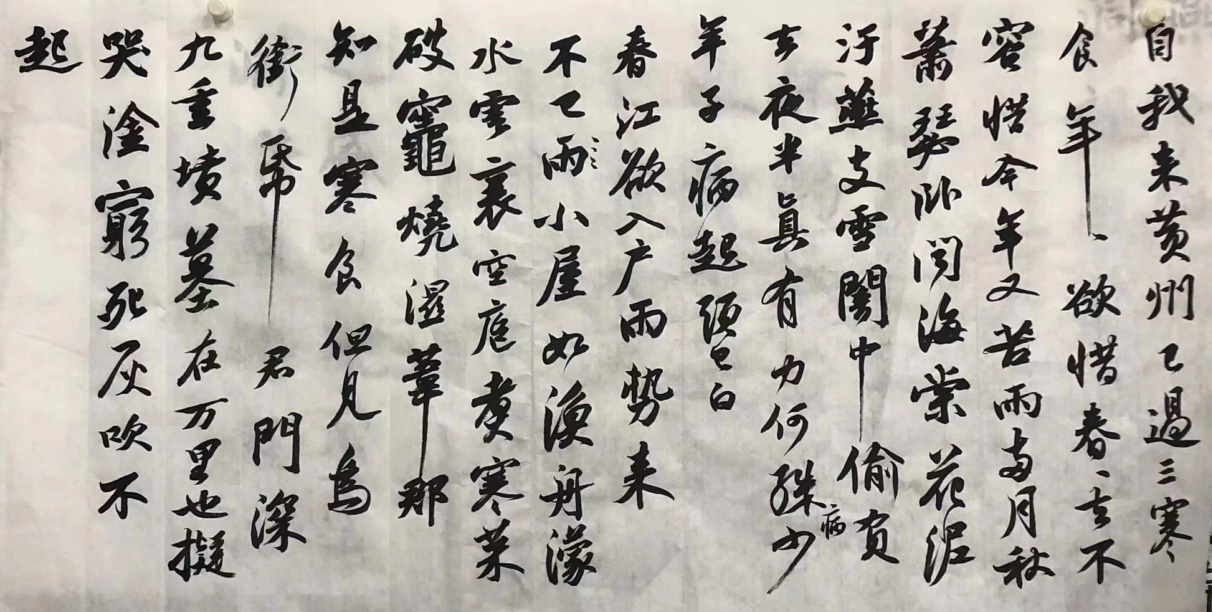 自我来黄州已過三寒
食年、欲惜春、去不
容惜今年又苦雨两月秋
蕭瑟卧闻海棠花泥
汙燕支雪闇中偷負
去夜半真有力何殊少病
年子病起頭已白
春江欲入户雨势来
不已雨小屋如漁舟濛
水雲裏空庖煮寒菜
破竈燒濕葦那
知是寒食但見烏
銜帋君門深
九重墳墓在万里也擬
哭塗窮死灰吹不
起